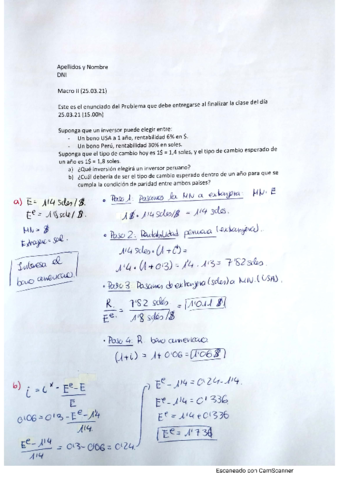 Apellidos y Nombre
DNI
Macro II (25.03.21)
Este es el enunciado del Problema que debe entregarse al finalizar la clase del día
25.03.21 [15.00h]
Suponga que un inversor puede elegir entre:
- Un bono USA a 1 año, rentabilidad 6% en $.
- Un bono Perú, rentabilidad 30% en soles.
Suponga que el tipo de cambio hoy es 1$ = 1,4 soles, y el tipo de cambio esperado de
un año es 1$ = 1,8 soles.
a) ¿Qué inversión elegirá un inversor peruano?
b) ¿Cuál debería de ser el tipo de cambio esperado dentro de un año para que se
cumpla la condición de paridad entre ambos países?
a) E = 1'4 soles/$.
E^e = 1'8 sole/$.
MN = $
Extranjera = sol.
Interesa el
bono americano
• Paso 1. Pasamos la MN a extranjera: MN · E
1$ · 1'4 soles/$ = 1'4 soles.
• Paso 2. Rentabilidad peruana (extranjera).
1'4 soles · (1+i*) =
1'4 · (1+0'3) = 1'4 · 1'3 = 1'82 soles
• Paso 3. Pasamos de extranjera (soles) a MN (USA).
R / E^e = 1'82 soles / 1'8 soles/$ = 1'011 $
• Paso 4. R bono americano
(1+i) = 1+0'06 = 1'06 $
b) i = i* - (E^e - E) / E
0'06 = 0'3 - (E^e - 1'4) / 1'4
(E^e - 1'4) / 1'4 = 0'3 - 0'06 = 0'24
E^e - 1'4 = 0'24 · 1'4
E^e - 1'4 = 0'336
E^e = 1'4 + 0'336
E^e = 1'736
Escaneado con CamScanner